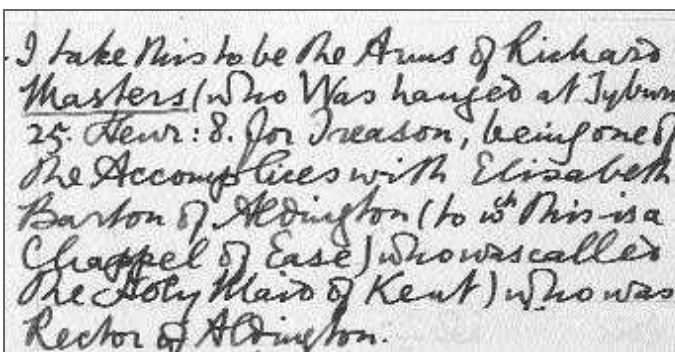 I take this to be the Arms of Richard
Masters (who Was hanged at Tyburn
25. Henr: 8. for Treason, being one of
the Accomplices with Elisabeth
Barton of Aldington (to wch this is a
Chappel of Ease) who was called
the Holy Maid of Kent) who was
Rector of Aldington.